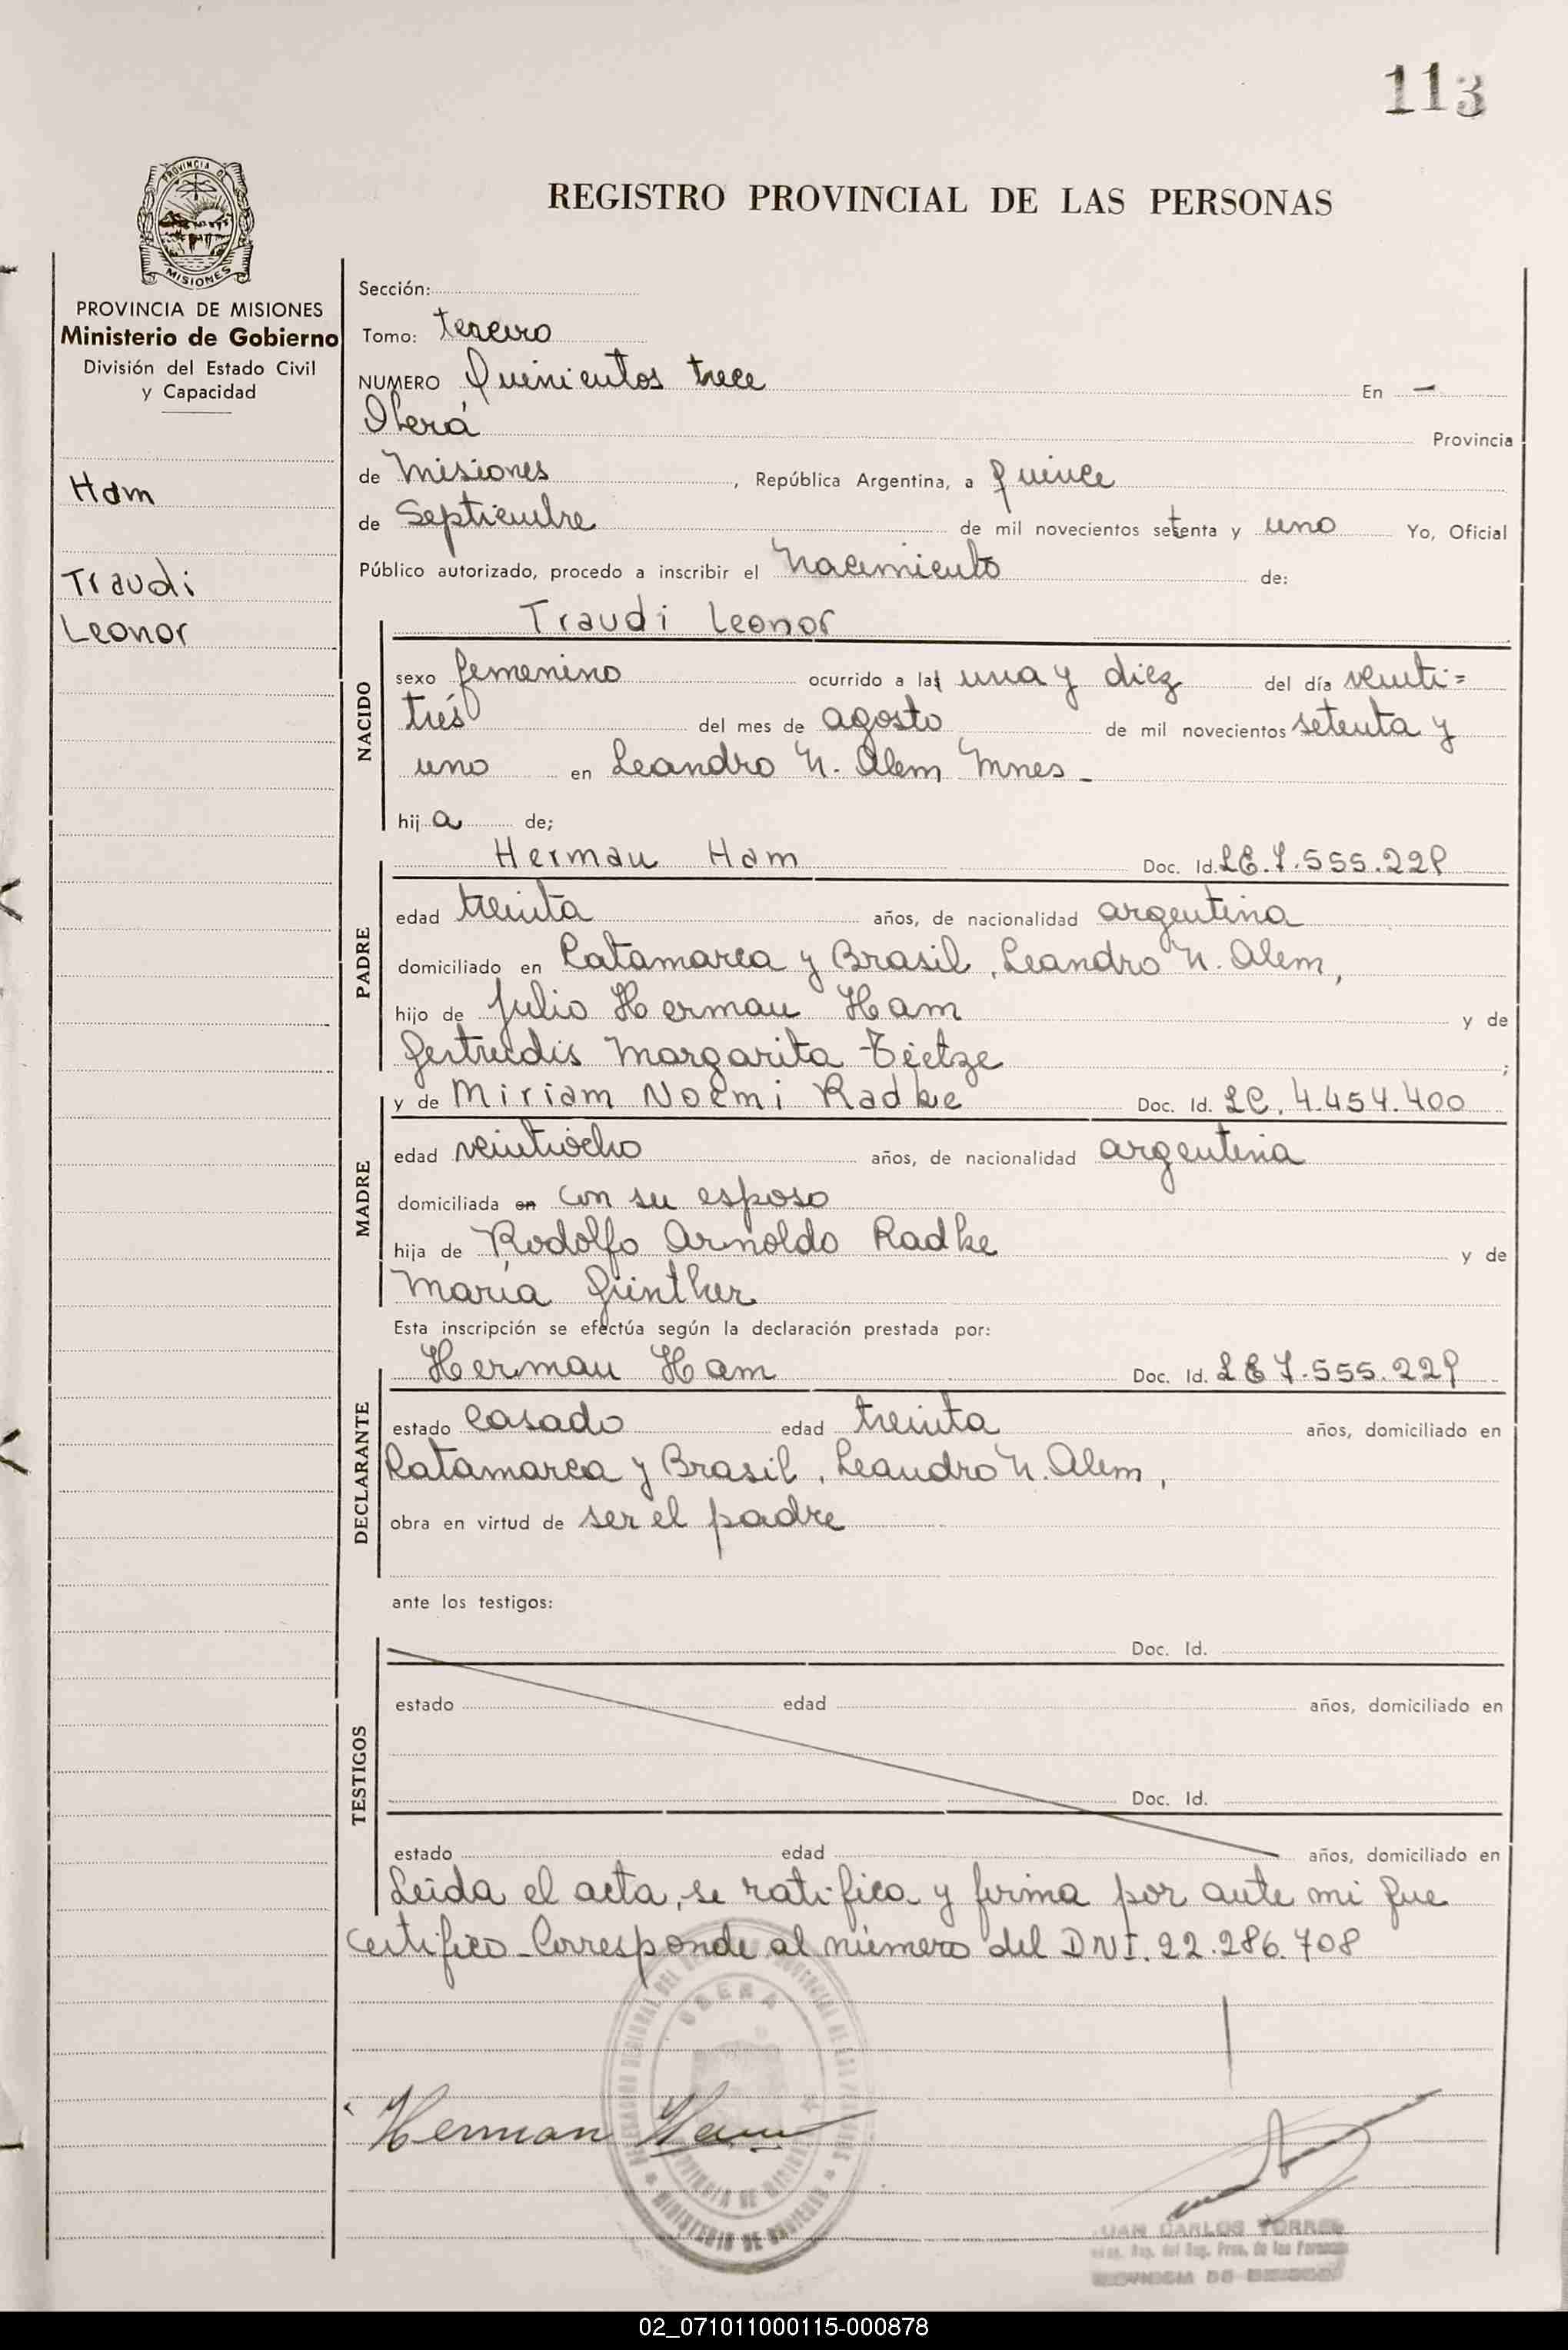 113
PROVINCIA DE
MISIONES
REGISTRO PROVINCIAL DE LAS PERSONAS
PROVINCIA DE MISIONES
Ministerio de Gobierno
División del Estado Civil
y Capacidad
Ham
Traudi
Leonor
Sección:
Tomo: tercero
NUMERO Quinientos trece En —
Oberá Provincia
de Misiones, República Argentina, a quince
de Septiembre de mil novecientos setenta y uno Yo, Oficial
Público autorizado, procedo a inscribir el nacimiento de:
Traudi Leonor
NACIDO
sexo femenino ocurrido a las una y diez del día veinti=
trés del mes de agosto de mil novecientos setenta y
uno en Leandro N. Alem Mnes -
hija de;
Herman Ham Doc. Id. LE. 7.555.229
PADRE
edad treinta años, de nacionalidad argentina
domiciliado en Catamarca y Brasil, Leandro N. Alem,
hijo de Julio Herman Ham y de
Gertrudis Margarita Tietze;
y de Miriam Noemi Radke Doc. Id. LC. 4.454.400
MADRE
edad veintiocho años, de nacionalidad argentina
domiciliada en con su esposo
hija de Rodolfo Arnoldo Radke y de
María Günther
Esta inscripción se efectúa según la declaración prestada por:
Herman Ham Doc. Id. LE 7.555.229
DECLARANTE
estado casado edad treinta años, domiciliado en
Catamarca y Brasil, Leandro N. Alem,
obra en virtud de ser el padre
ante los testigos:
Doc. Id.
TESTIGOS
estado edad años, domiciliado en
Doc. Id.
estado edad años, domiciliado en
Leida el acta, se ratifica y firma por ante mi que
certifico - Corresponde al número del DNI. 22.286.708
OBERA
MINISTERIO DE GOBIERNO
Herman Ham
JUAN CARLOS TORRES
PROVINCIA DE MISIONES
02_071011000115-000878